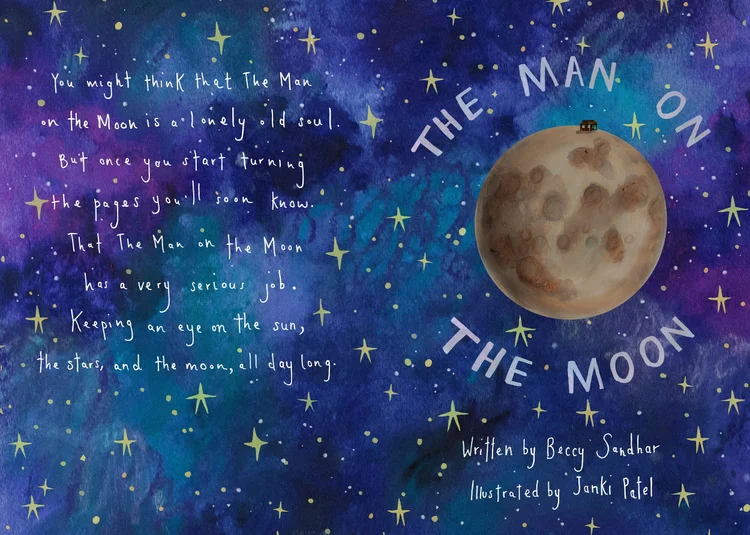 You might think that The Man
on the Moon is a lonely old soul.
But once you start turning
the pages you'll soon know.
That The Man on the Moon
has a very serious job.
Keeping an eye on the sun,
the stars, and the moon, all day long.
THE MAN ON
THE MOON
Written by Beccy Sandhar
Illustrated by Janki Patel